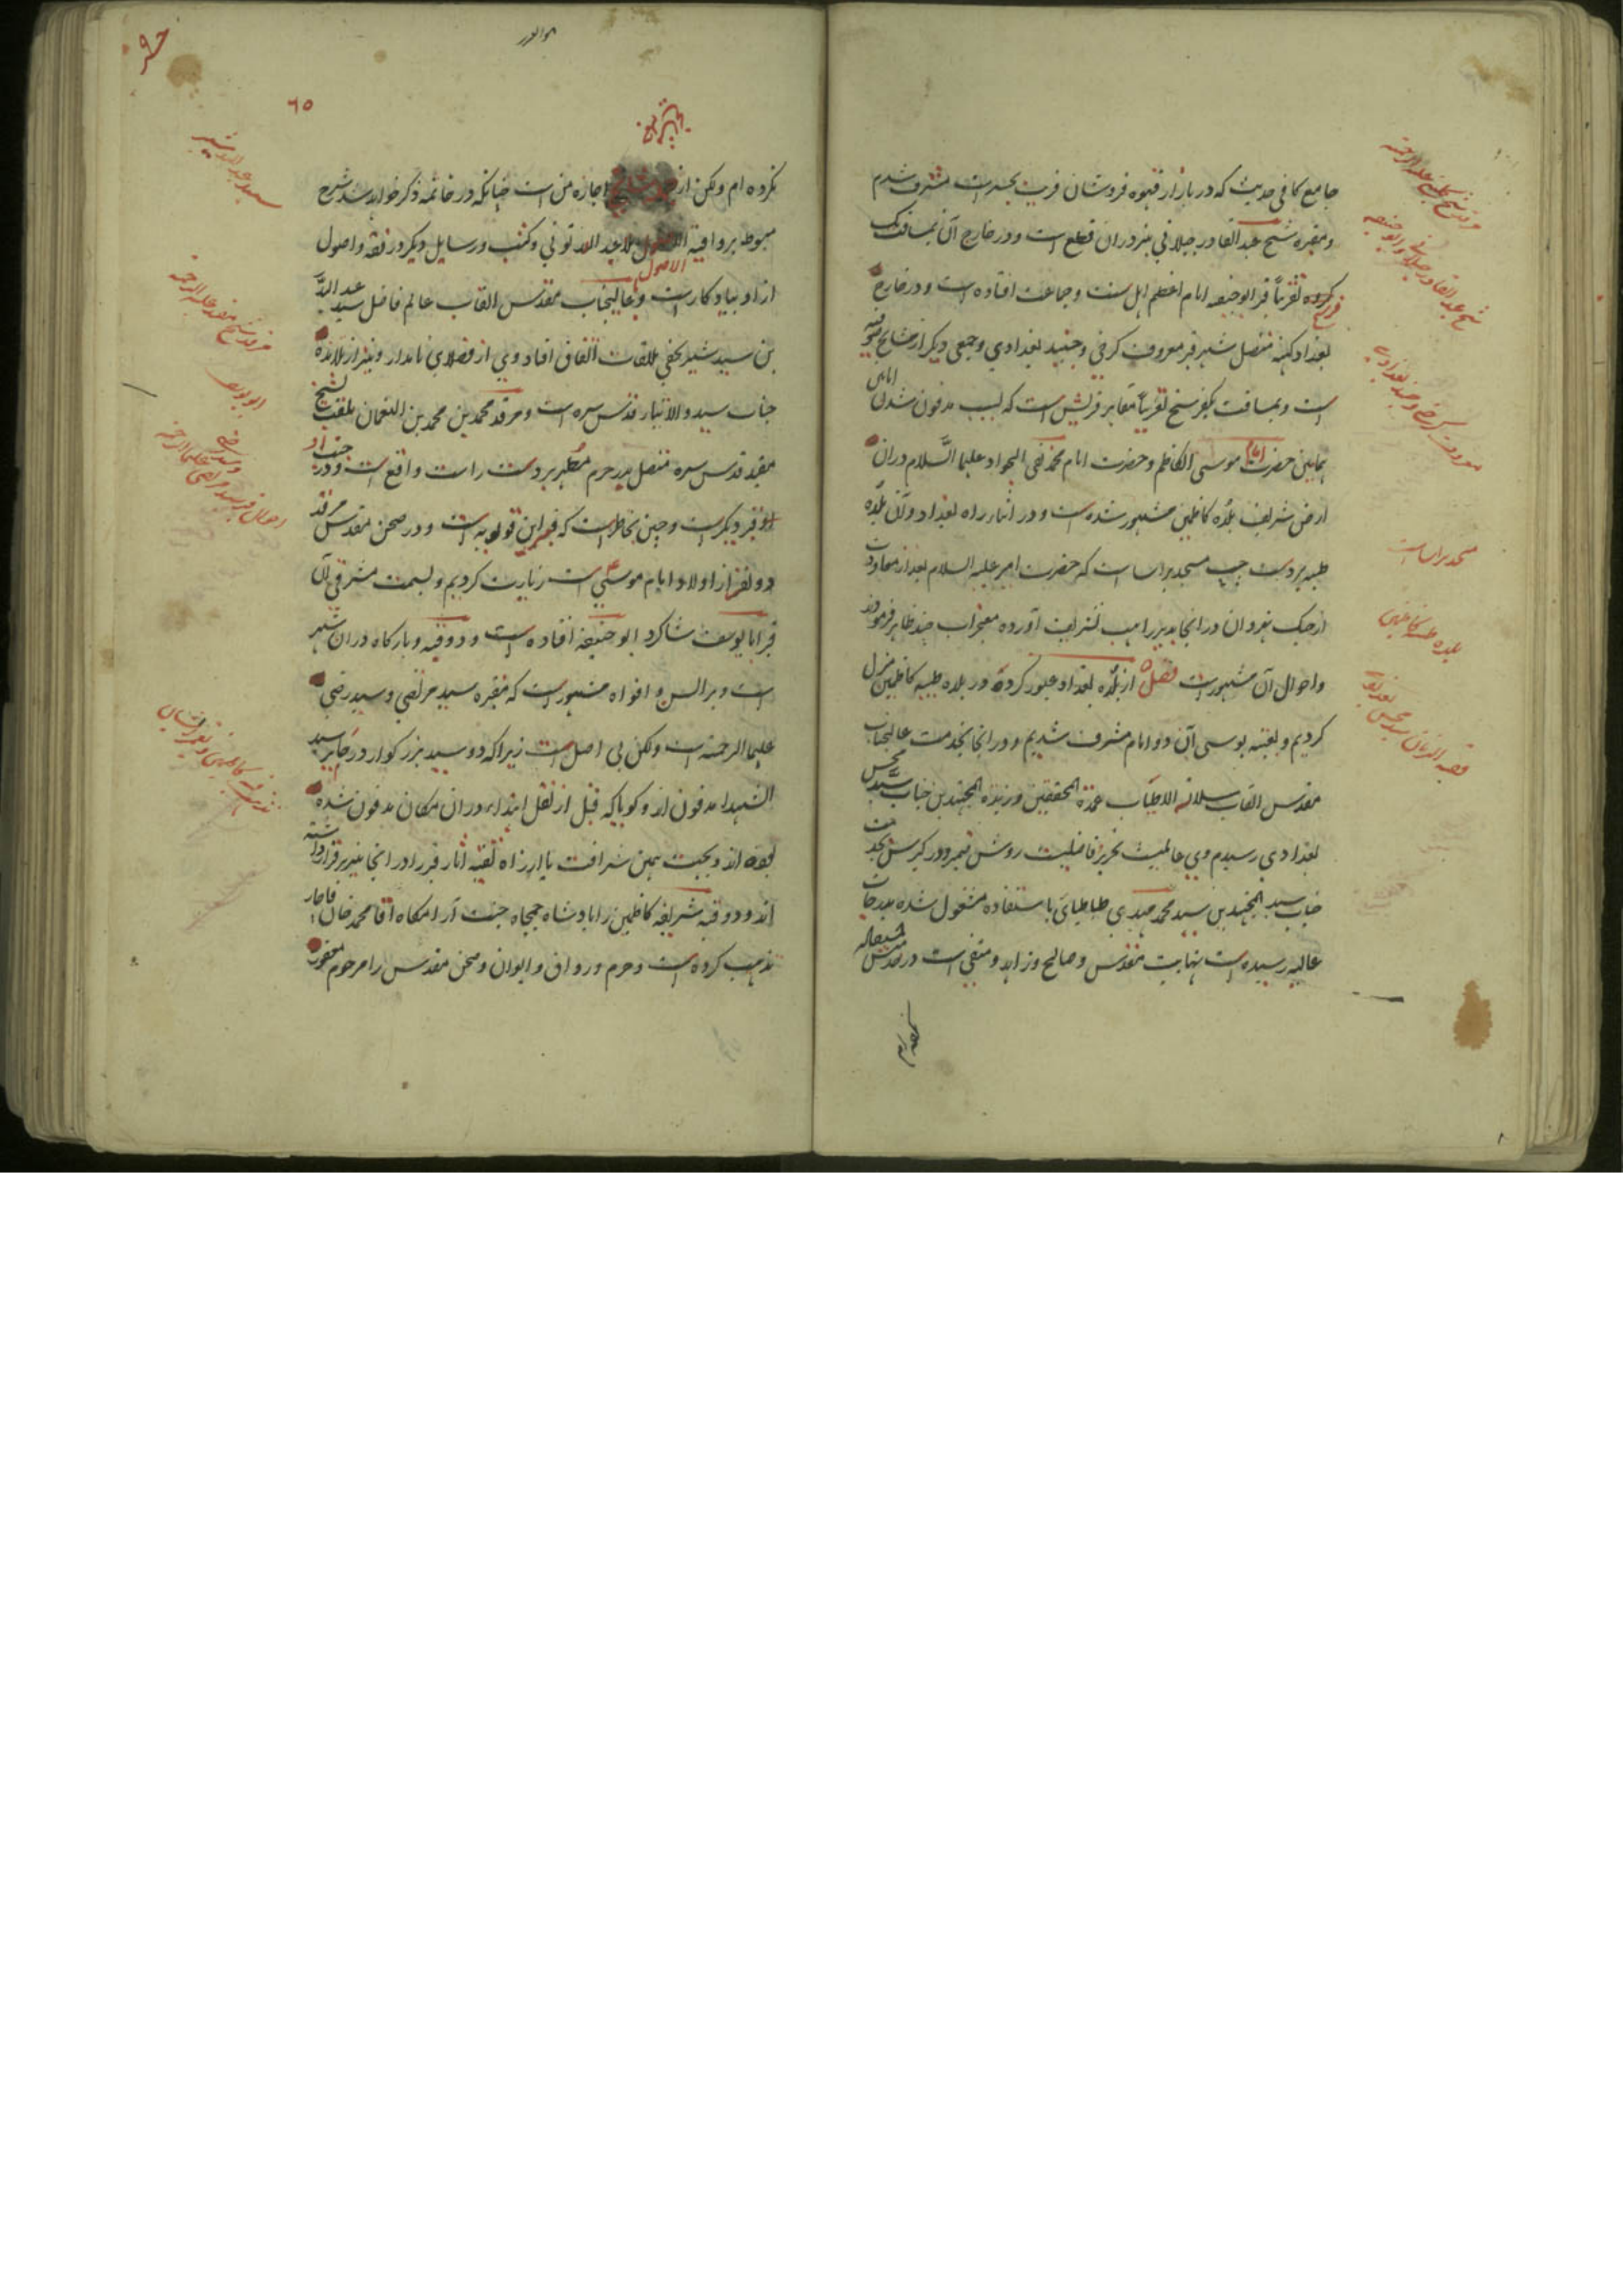 جامع کافی حدیث که در بازار قهوه فروشان قریب بجسر است مشرف شدم
ومقبره شیخ عبدالقادر جیلانی نیز دران قطع است و در خارج آن بمسافت یک
فرسخ کرده تقریباً قبر ابوحنیفه امام اعظم اهل سنت و جماعت افتاده است و در خارج
بغداد کهنه متصل شهر قبر معروف کرخی و جنید بغدادی و جمعی دیکر از مشایخ صوفیه
است و بمسافت یکفرسخ تقریباً مقابر قریش است که بسبب مدفون شدن
امامین همامین حضرت امام موسی الکاظم و حضرت امام محمد تقی الجواد علیهما السلام دران
ارض شریف بلده کاظمین مشهور شده است و در اثنار راه بغداد و آن بلده
طیبه بر دست چپ مسجد براسا است که حضرت امیر علیه السلام بعد از معاودت
از جنک نهروان در انجا بدیر راهب تشریف آورده معجزات چند ظاهر فرمودند
واحوال آن مشهور است فصل از بلده بغداد عبور کرده در بلده طیبه کاظمین منزل
کردیم و بعتبه بوسی آن دو امام مشرف شدیم و در انجا بخدمت عالیجناب
مقدس القاب سلالة الاطیاب عمدة المحققین و زبدة المجتهدین جناب سید محسن
بغدادی رسیدم وی
جناب سید المجتهدین سید محمد مهدی طباطبای باستفاده مشغول شده بدرجات
عالیه رسیده است نهایت مقدس و صالح و زاهد و متقی است در
مسجد براسا است
بلده طیبه کاظمین
٦٥
نکرده ام ولکن از مشایخ اجازه من است چنانکه در خاتمه ذکر خواهد شد شرح
مبسوط بر وافیة الاصول ملا عبد الله تونی و کتب و رسایل دیکر در فقه و اصول
از او بیادکار است و عالیجناب مقدس القاب عالم فاضل سید عبد الله
بن سید شبر نجفی ملاقات اتفاق افتاد وی از فضلای نامدار و نیز از تلامذه
جناب سید والاتبار قدس سره است و مرقد محمد بن محمد بن النعمان ملقب بشیخ
مفید قدس سره متصل بدر حرم مطهر بر دست راست واقع است و در جنب او
قبر دیکر است و چنین بخاطر است که قبر ابن قولویه است و در صحن مقدس مرقد
دو نفر از اولاد امام موسی است زیارت کردیم و بسمت مشرقی آن
قبر ابایوسف شاکرد ابوحنیفه افتاده است و دو قبه و بارکاه دران شهر
است و بر السن و افواه مشهور است که مقبره سید مرتضی و سید رضی
علیهما الرحمه است ولکن بی اصل است زیرا که دو سید بزرکوار در حایر سید
الشهدا مدفون اند و کویا که قبل از نقل ابتداء دران مکان مدفون شده
بوده اند و بجهت همین شرافت یا از راه تقیه آثار قبر را در انجا نیز برقرار داشته
اند و دو قبه شریفه کاظمین را پادشاه جمجاه جنت آرامکاه آقا محمد خان قاجار
تذهیب کرده است و حرم و رواق و ایوان و صحن مقدس را مرحوم مغفور
سید عبدالله شبر
مرقد شیخ مفید علیه الرحمه
ابو یوسف